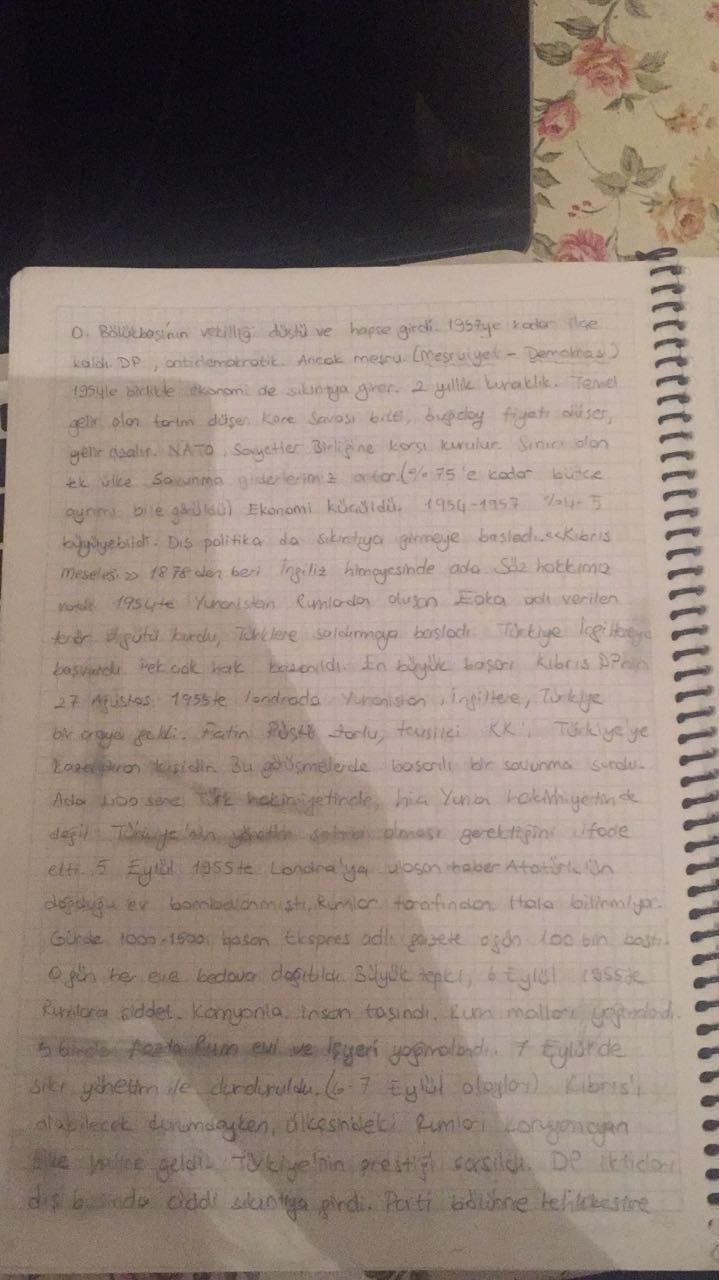 O. Bölükbaşı'nın vekilliği düştü ve hapse girdi. 1957ye kadar ilçe
kaldı. DP, antidemokratik. Ancak meşru. (Meşruiyet - Demokrasi)
1954le birlikte ekonomi de sıkıntıya girer. 2 yıllık kuraklık. Temel
gelir olan tarım düşer. Kore Savaşı bitti, buğday fiyatı düşer,
gelir azalır. NATO, Sovyetler Birliğine karşı kurulur. Sınırı olan
tek ülke Savunma giderlerimiz artar. (%75'e kadar bütçe
ayrımı bile görüldü) Ekonomi küçüldü. 1954-1957 %4-5
büyüyebildi. Dış politika da sıkıntıya girmeye başladı. <<Kıbrıs
Meselesi>> 1878'den beri İngiliz himayesinde ada. Söz hakkımız
1954te Yunanistan Rumlardan oluşan Eoka adı verilen
terör örgütü kurdu, Türklere saldırmaya başladı. Türkiye İngiltereye
başvurdu. Pek çok hak kazanıldı. En büyük başarı Kıbrıs DPnin
27 Ağustos 1955te Londrada Yunanistan, İngiltere, Türkiye
bir araya geldi. Fatin Rüştü Zorlu, temsilci KK', Türkiye'ye
kazandıran kişidir. Bu görüşmelerde başarılı bir savunma sundu.
Ada 400 sene Türk hakimiyetinde, hiç Yunan hakimiyetinde
değil. Türkiye'nin yönetim sahibi olması gerektiğini ifade
etti. 5 Eylül 1955te Londra'ya ulaşan haber Atatürk'ün
doğduğu ev bombalanmıştı, Rumlar tarafından. Hala bilinmiyor.
Günde 1000-1500 basan Ekspres adlı gazete o gün 100 bin bastı.
O gün her eve bedava dağıtıldı. Büyük tepki, 6 Eylül 1955te
Rumlara şiddet. Kamyonla insan taşındı, Rum malları yağmalandı.
5 binden fazla Rum evi ve işyeri yağmalandı. 7 Eylül'de
sıkı yönetim ile durduruldu. (6-7 Eylül olayları) Kıbrıs'ı
alabilecek durumdayken, ülkesindeki Rumları koruyamayan
ülke haline geldi. Türkiye'nin prestiji sarsıldı. DP iktidarı
dış basında ciddi sıkıntıya girdi. Parti bölünme tehlikesine